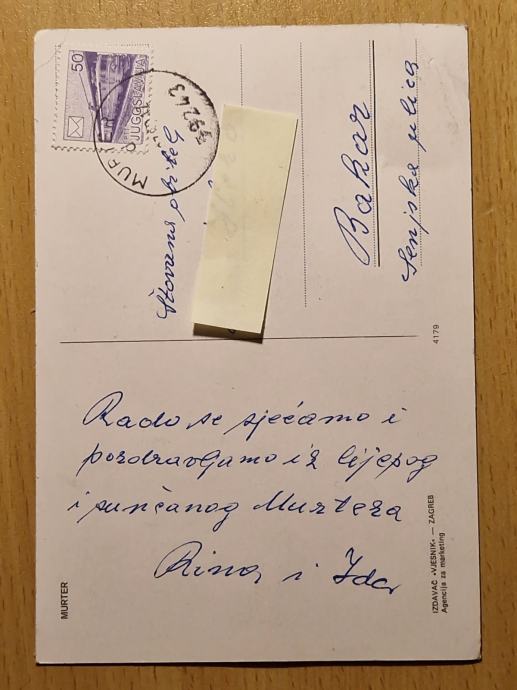 Rado se sjećamo i
pozdravljamo iz lijepog
i sunčanog Murtera
Rina i Ida
Štovana obitelj
Bakar
Senjska ulica
50
JUGOSLAVIJA
MURTER
59243
MURTER
4179
IZDAVAČ »VJESNIK« — ZAGREB
Agencija za marketing